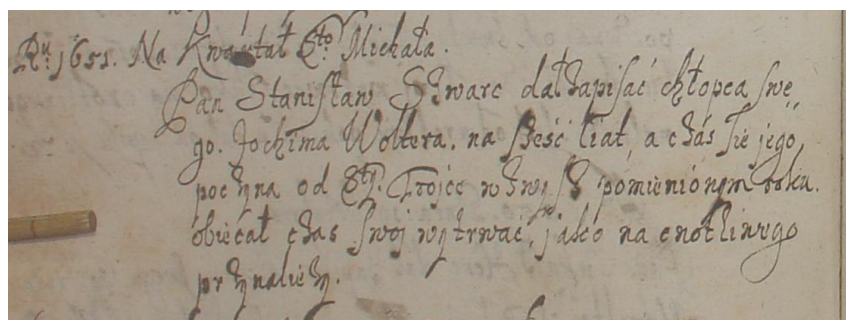 Ru: 1651. Na Kwartał Sto: Michała.
Pan Stanisław Szwarc dał zapisać chłopca swe„
go. Jochima Woltera, na sześć liat, a czás sie jego,
poczyna od S: Trojce w zwysz pomieniónym roku.
obiecał czas swoj wytrwać, jako na cnotliwego
przynalieży.